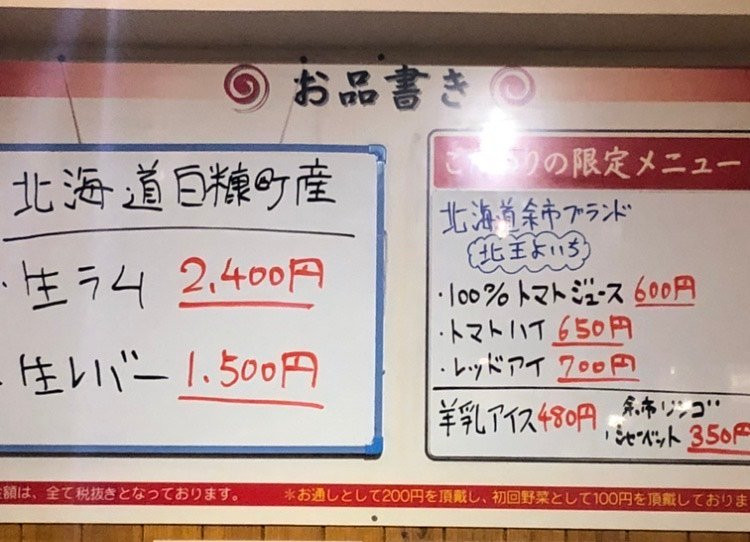 お品書き
北海道白糠町産
・生ラム 2,400円
・生レバー 1.500円
こだわりの限定メニュー
北海道余市ブランド
北王よいち
・100%トマトジュース 600円
・トマトハイ 650円
・レッドアイ 700円
羊乳アイス 480円
余市リンゴ
・シャーベット 350円
金額は、全て税抜きとなっております。
＊お通しとして200円を頂戴し、初回野菜として100円を頂戴しておりま